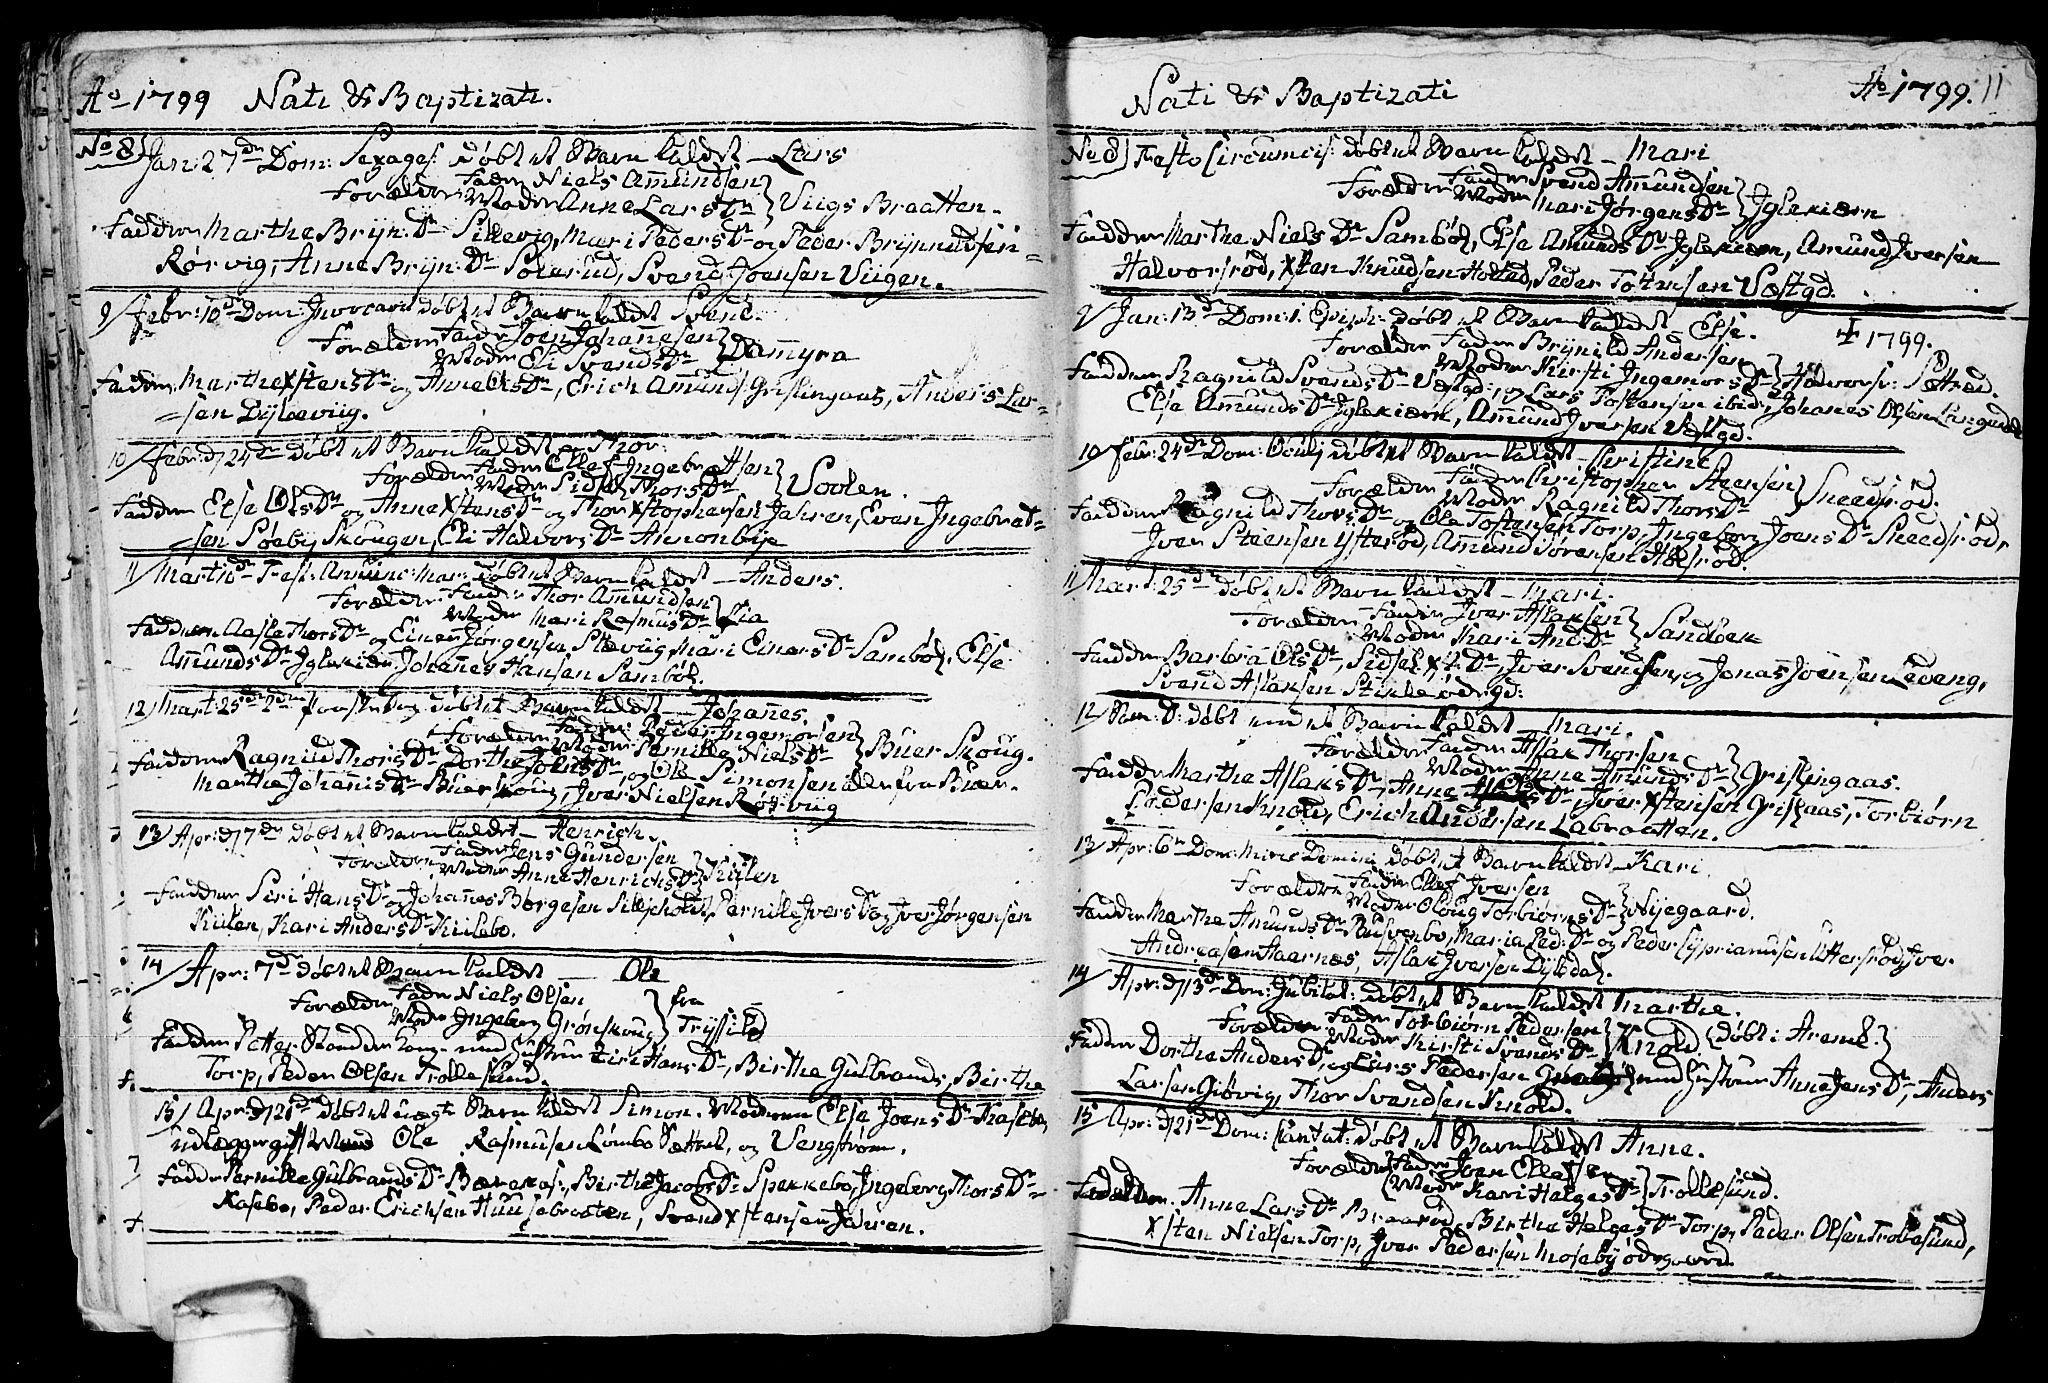 Ao 1799 Nati & Baptizati.
No 8) Jan: 27de Dom: Sexages: døbt et Barn kaldet – Lars
Forælder Fader Niels Amundsen
Moder Anne Lars Dr } Viigs Braatten.
Faddere Marthe Brÿn: Dr Sillevig, Mari Peders Dr og Peder Brÿnildsen
Rørvig, Anne Brÿn: Dr Solerud, Svend Joensen Viigen.
9/ Febr: 10de Dom: Invocavit døbt et Barn kaldet Svend.
Forælder Fader Joen Johannesen
Moder Eli Svends Dr } Damyra
Faddere Marthe Xstens Dr og Anne Ols Dr, Erich Amunds: Grislingaas, Anders Lar-
sen Dÿlevig.
10/ Febr: d 24de døbt et Barn kaldet – Thor.
Forælder Fader Ellef Ingebretsen
Moder Sidsel Thors Dr } Soolen.
Faddere Else Ols Dr og Anne Xstens Dr og Thor Xstophersen Jahren, Even Ingebret-
sen Søeby Skougen, Eli Halvors Dr Annonbÿe
11/ Mart: 10de Fest: Annunc: Mari: døbt et Barn kaldet – Anders.
Forælder Fader Thor Amundsen
Moder Mari Rasmus Dr } Lia
Faddere Aasle Thors Dr og Einer Jørgensen Stævig, Mari Einers Dr Sambøl, Else
Amunds Dr Iglekiæn, Johannes Hansen Sambøl.
12/ Mart: 25de 2den Paaske Dag døbt et Barn kaldet – Johannes.
Forælder Fader Peder Ingemorsen
Moder Pernille Niels Dr } Buer Skoug.
Faddere Ragnild Thors Dr Dorthe Joens Dr, og Ole Simonsen alle fra Buer.
Marthe Johannis Dr Buer skoug, Iver Nielsen Rørvig
13/ Apr: d 7de døbt et Barn kaldet – Henrich.
Forælder Fader Jens Gundersen
Moder Anne Henrichs Dr } Kiilen
Faddere Siri Hans Dr og Johannes Børgesen Sillesholt, Pernille Ivers Dr og Iver Jørgensen
Kiilen, Kari Anders Dr Kiilebo.
14/ Apr: 7de døbt et Barn kaldet – Ole
Forælder Fader Niels Olsen
Moder Ingeborg Grønskoug } fra Trÿssild
Faddere Petter med Hustrue Siri Hans Dr, Birthe Gulbrands, Birthe
Torp, Peder Olsen Trollesund.
15/ Apr: d 21de døbt et uægte Barn kaldet Simon. Moderen Else Joens Dr Kasebo,
udlægger gift Mand Ole Rasmusen Lømbo Sættet, og Vengstrøm.
Faddere Pernille Gulbrands Dr Bærekas:, Birthe Jacobs Dr Spekkebo, Ingeborg Thors Dr
Kasebo, Peder Erichsen Huusebraaten, Svend Xstensen Jahren.
Nati & Baptizati Ao 1799. 11
No 8) Festo Circumcis: døbt et Barn kaldet – Mari
Forælder Fader Svend Amundsen
Moder Mari Jørgens Dr } Iglekiærn
Faddere Marthe Niels Dr Sambøl, Else Amunds Dr Iglekiærn, Amund Iversen
Halvorsrød, Xsten Knudsen Holted, Peder Tostensen Væstgd.
9/ Jan: 13de Dom: 1. Epiph: døbt et Barn kaldet – Else. ✝ 1799.
Forælder Fader Brÿnild Andersen
Moder Kirsti Ingemors Dr } Halvorsr: Sættred.
Faddere Ragnild Svends Dr Væstgd:, og Lars Tostensen ibid:, Johanes Olsen
Else Amunds Dr Iglekiærn, Amund Iversen Væstgd.
10/ Febr: 24de Dom: Oculi døbt et Barn kaldet – Christine
Forælder Fader Christopher Steensen
Moder Ragnild Thors Dr } Sneedsrød.
Faddere Ragnild Thors Dr og Ole Tostensen Torp, Ingeborg Joens Dr Sneedsrød,
Iver Steensen Ysterød, Amund Sørensen Hæsrød.
11/ Mart: 25de døbt et Barn kaldet – Mari.
Forælder Fader Iver Aslaksen
Moder Kari And: Dr } Sandbek
Faddere Barbra Ols Dr, Sidsel Xst: Dr, Iver Svendsen, og Jonas Joensen Ledeng,
Svend Aslaksen Stikle ødegd:
12/ Sam: D: døbt end et Barn kaldet – Mari.
Forælder Fader Aslak Thorsen
Moder Anne Amunds Dr } Grislingaas.
Faddere Marthe Aslaks Dr, Anne Ols Dr, Iver Xstensen Grislaas, Torbiørn
Pedersen Knold, Erich Andersen Labraatten.
13/ Apr: 6te Dom: Miric: Domini døbt et Barn kaldet – Kari.
Forælder Fader Ellef Iversen
Moder Oloug Torbiørns Dr } Nÿegaard.
Faddere Marthe Amunds Dr Rusvenbo, Maria Ped: Dr og Peder Cyprianusen Uttersrød, Iver
Andreasen Haarnæs, Aslak Iversen Dÿbedal.
14/ Apr: d 13de Dom: Jubilat: døbt et Barn kaldet Marthe.
Forælder Fader Torbiørn Pedersen
Moder Kirsti Svends Dr } Knold (døbt i Aremk.)
Faddere Dorthe Anders Dr, og Lars Pedersen med Hustrue Anne Jens Dr, Anders
Larsen Giøvig, Thor Svendsen Knold.
15/ Apr: d 21de Dom: Cantat: døbt et Barn kaldet Anne.
Forælder Fader Joen Ellefsen
Moder Kari Helges Dr } Trollesund.
Faddere: Anne Lars Dr Braarød, Birthe Helges Dr Torp, Peder Olsen Trollesund,
Xsten Nielsen Torp, Iver Pedersen Mosebÿ ødegaard.